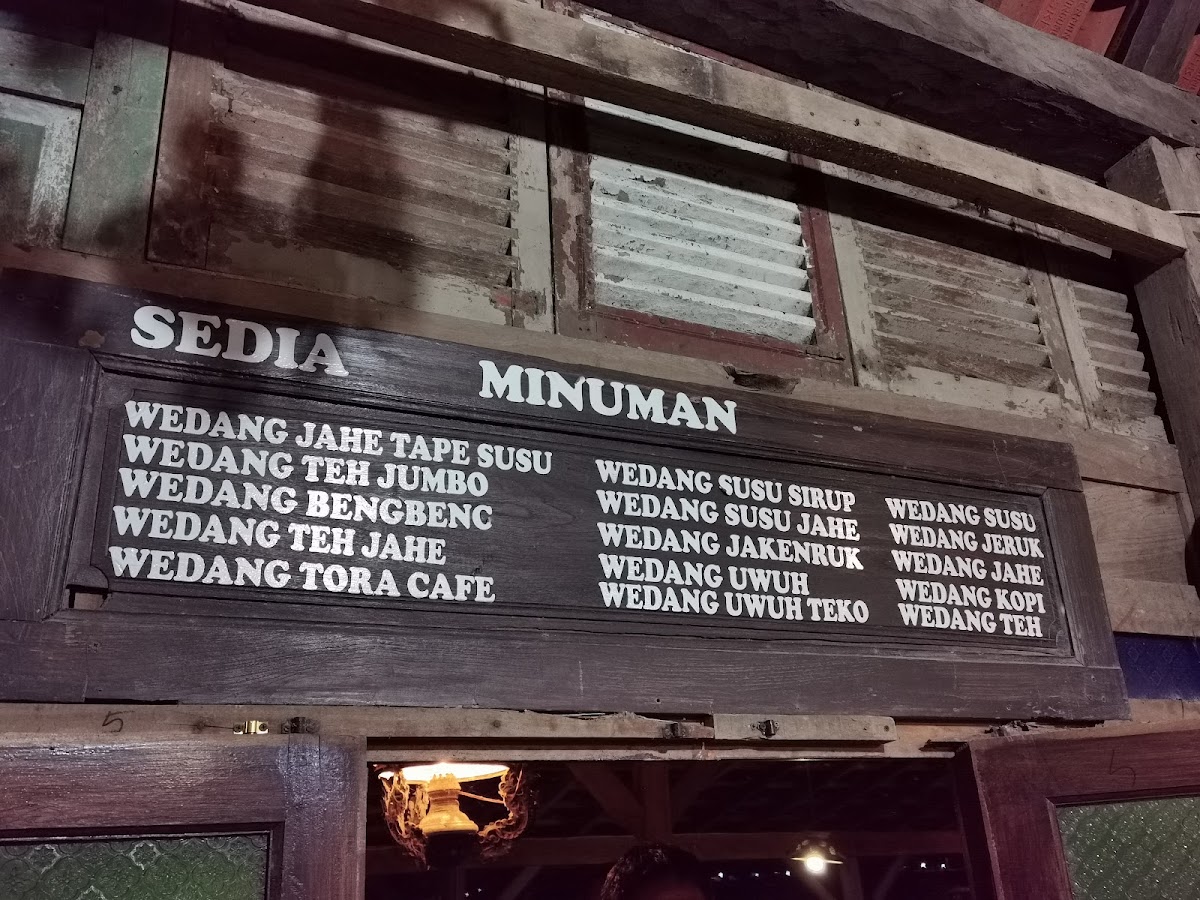 SEDIA MINUMAN
WEDANG JAHE TAPE SUSU
WEDANG TEH JUMBO
WEDANG BENGBENC
WEDANG TEH JAHE
WEDANG TORA CAFE
WEDANG SUSU SIRUP
WEDANG SUSU JAHE
WEDANG JAKENRUK
WEDANG UWUH
WEDANG UWUH TEKO
WEDANG SUSU
WEDANG JERUK
WEDANG JAHE
WEDANG KOPI
WEDANG TEH
5